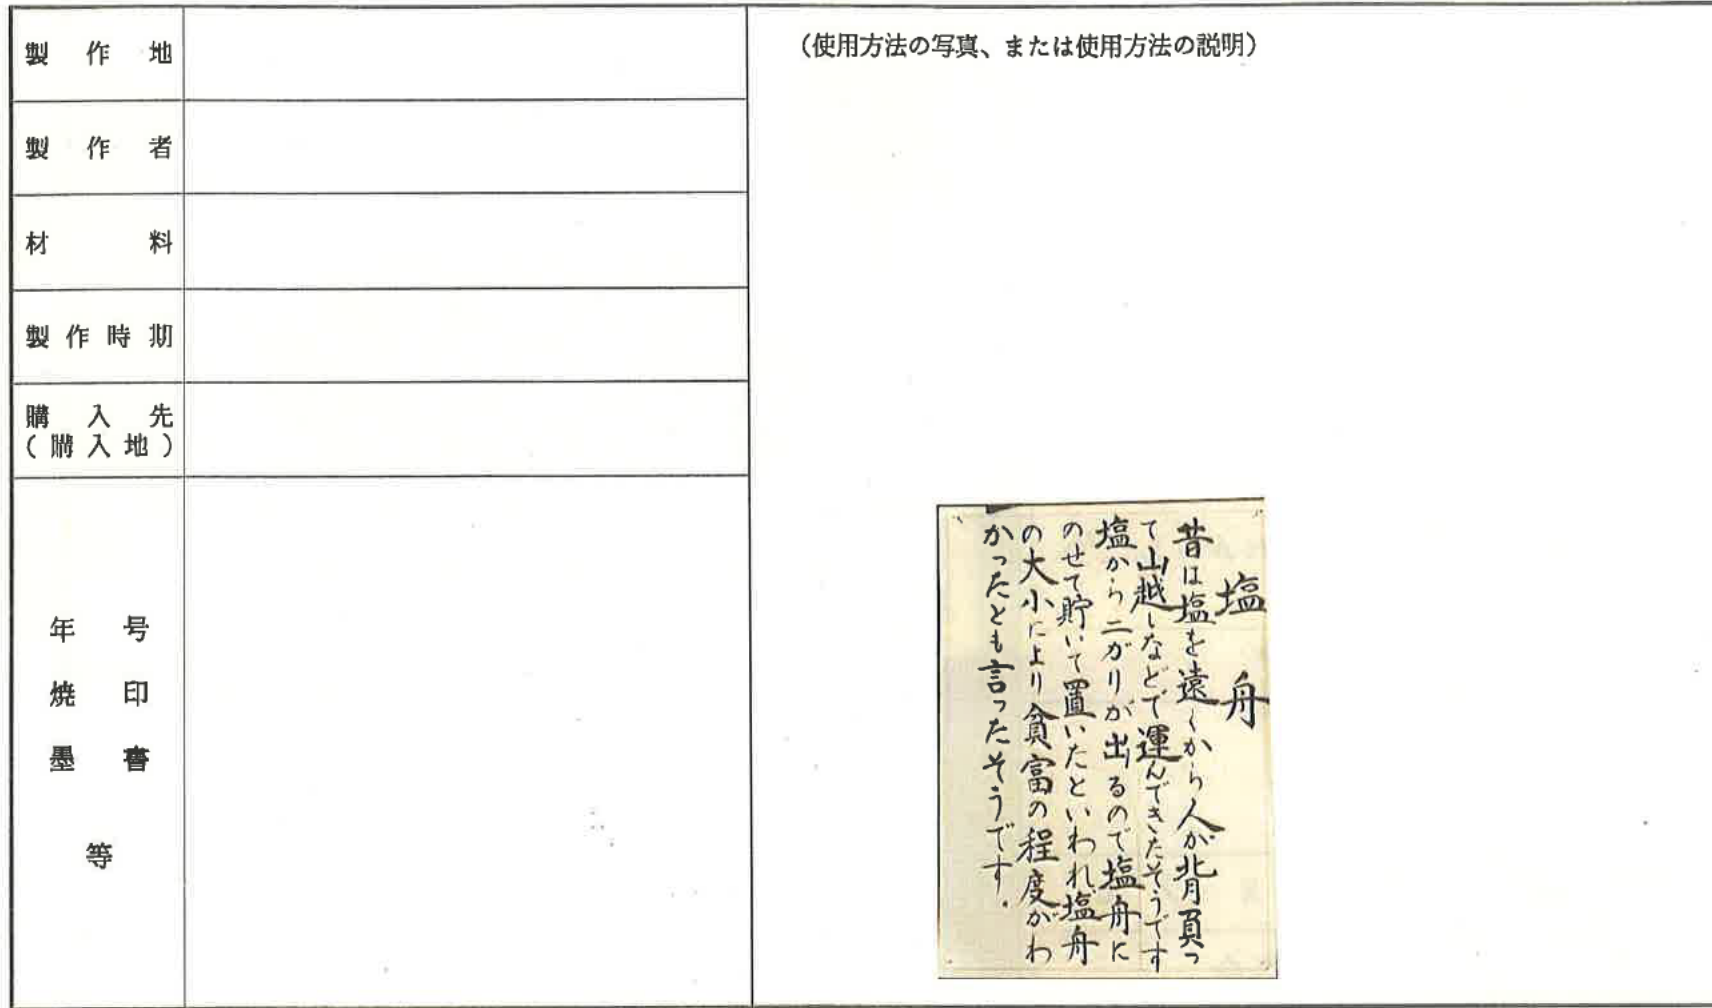 製作地
製作者
材料
製作時期
購入先
(購入地)
年号
焼印
墨書
等
(使用方法の写真、または使用方法の説明)
塩舟
昔は塩を遠くから人が背負っ
て山越しなどで運んできたそうです
塩から二ガリが出るので塩舟に
のせて貯いて置いたといわれ塩舟
の大小により貧富の程度がわ
かったとも言ったそうです.